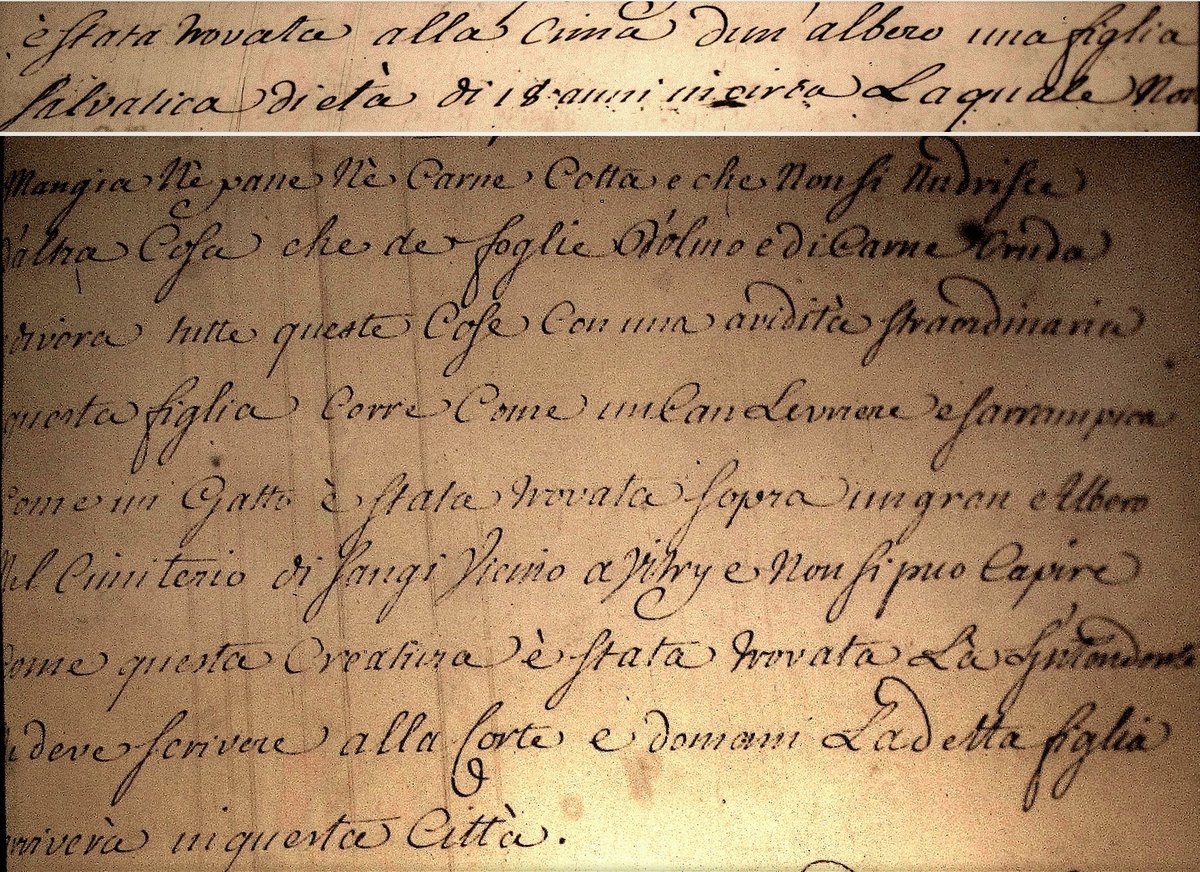 è stata trovata alla Cima d'un albero una figlia
salvatica d'età di 18 anni incirca La quale Non
Mangia Nè pane Nè Carne Cotta e che Non si Nudrisce
d'altra Cosa che de foglie d'olmo e di Carne Cruda
divora tutte queste Cose Con una avidità straordinaria
questa figlia Corre Come un Can Levriere e sarrampica
Come un Gatto è stata trovata sopra un gran Albero
Nel Cimiterio di Sangi Vicino a Vitry e Non si puo Capire
Come questa Creatura è stata trovata La
si deve scrivere alla Corte e domani La detta figlia
arriverà in questa Città.